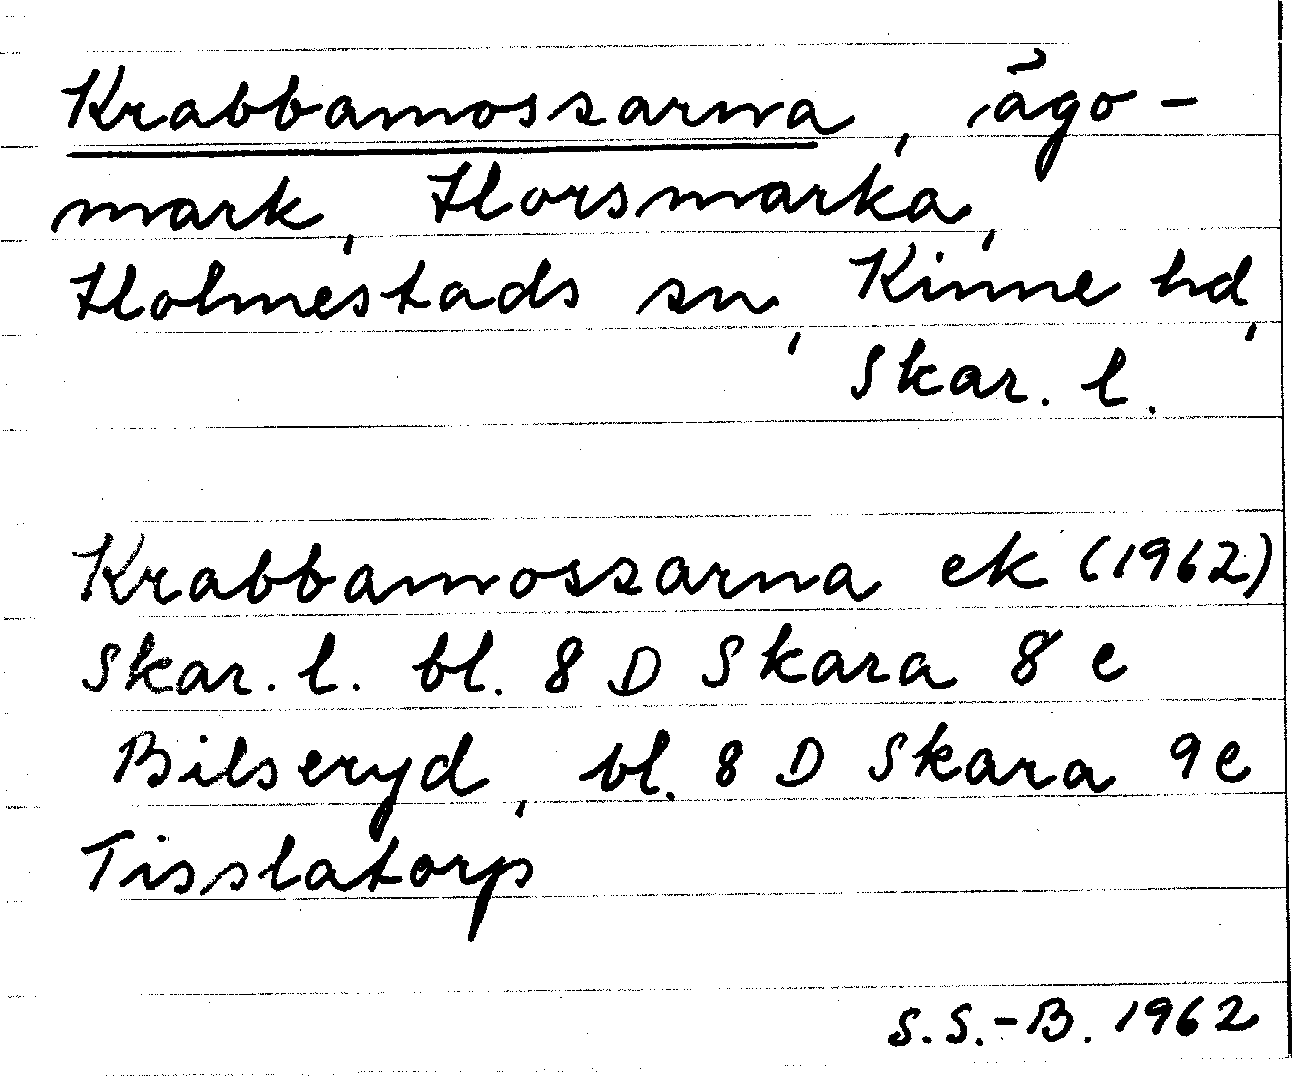 Krabbamossarna, ägo-
mark, Horsmarka,
Holmestads sn, Kinne hd,
Skar. l.
Krabbamossarna ek (1962)
Skar. l. bl. 8 D Skara 8 e
Bilseryd, bl. 8 D Skara 9 e
Tisslatorp
S.S.-B. 1962